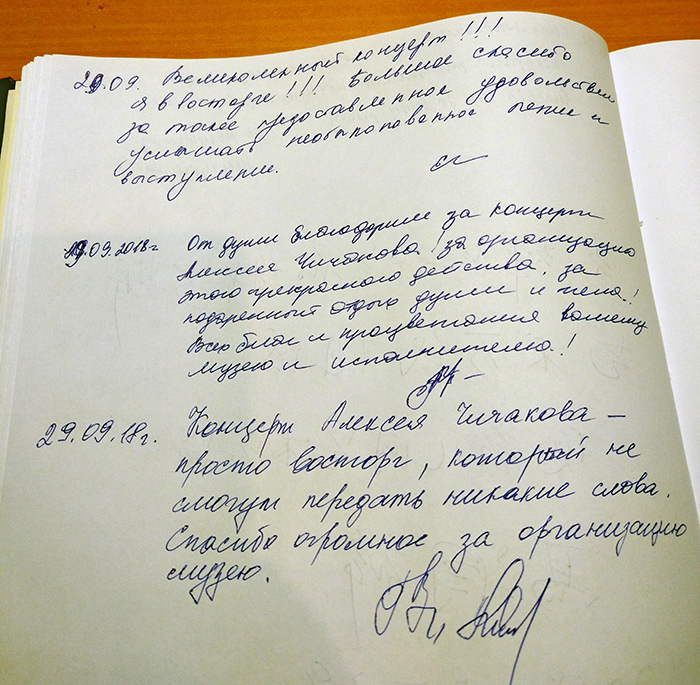 29.09. Великолепный концерт!!!
Я в восторге!!! Большое спасибо
за такое предоставленное удовольствие
услышать необыкновенное пение и
выступление.
29.09.2018г От души благодарим за концерт
Алексея Чичакова, за организацию
этого прекрасного действа, за
подаренный отдых души и тела!
Всех благ и процветания вашему
музею и исполнителю!
29.09.18г. Концерт Алексея Чичакова –
просто восторг, который не
смогут передать никакие слова.
Спасибо огромное за организацию
музею.